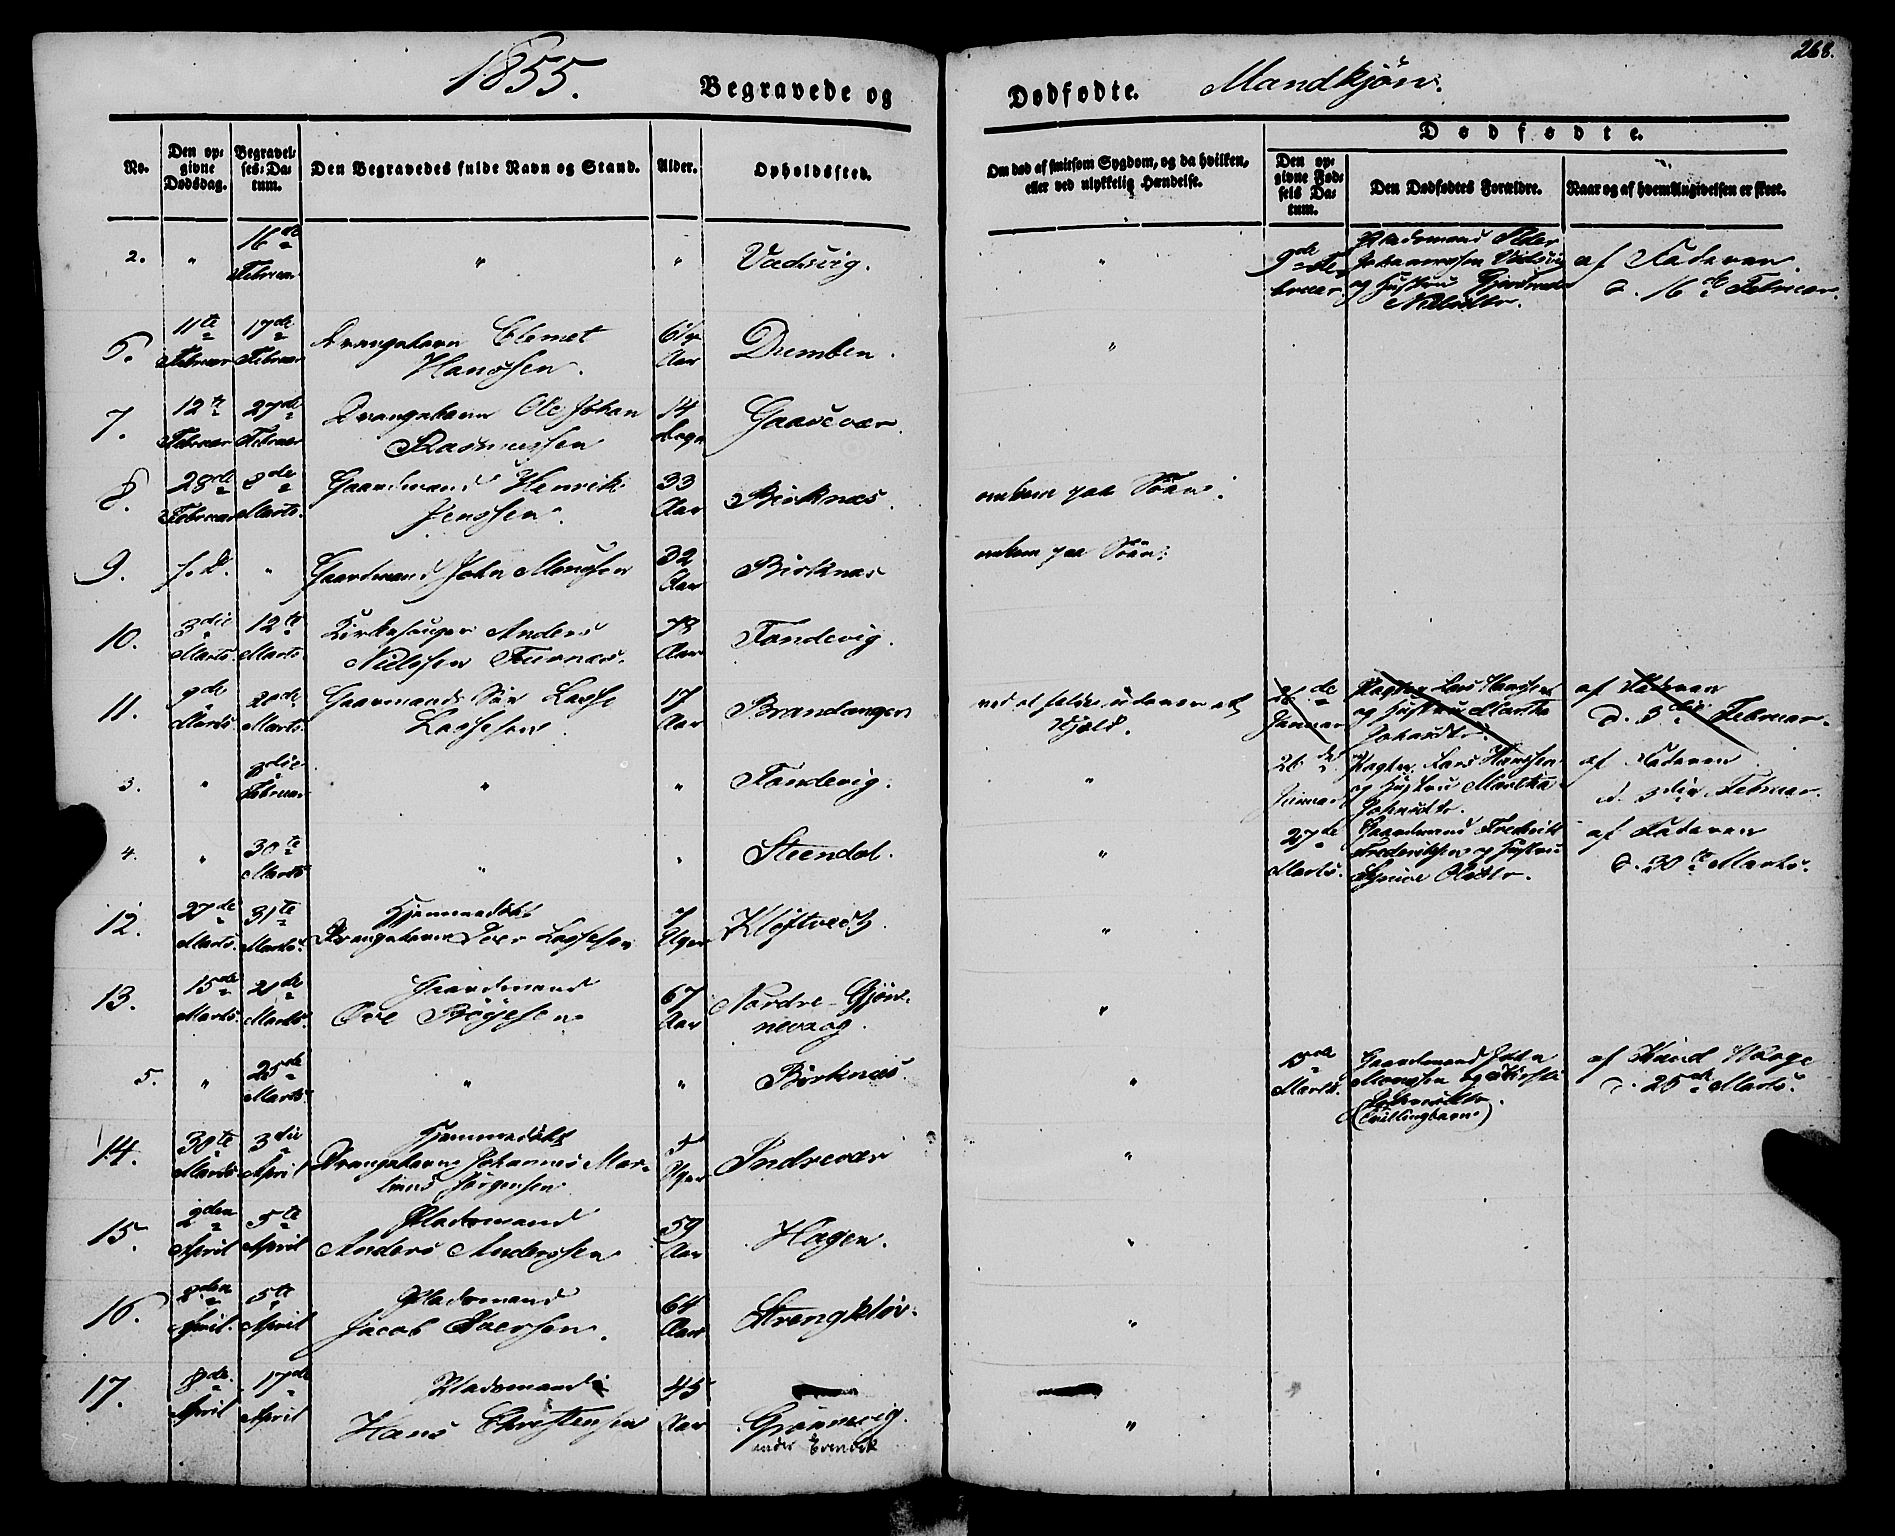 268.
1855.
Begravede og
Dødfødte. Mandkjøn.
No.
Den opgivne Dødsdag.
Begravelses-Datum.
Den Begravedes fulde Navn og Stand.
Alder.
Opholdssted.
Om død af smitsom Sygdom, og da hvilken,
eller ved ulykkelig Hændelse.
Dødfødte.
Den opgivne Fødsels Datum.
Den Dødfødtes Forældre.
Naar og af hvem Angivelsen er skeet.
2. " 16de Februar " " Vadsvig. " 9de Februar
Pladsmand Peder
Johannessen Vadsvig
og Hustru
af Faderen
d. 16de Februar.
6. 11te Februar 17de Februar Drengebarn Clemet
Hanssen. Aar "
7. 12te Februar 27de Februar Drengebarn Ole Johan
Rasmussen 14 Dage Gaasevær
8. 28de Februar 8de Marts Gaardmand Henrik
Jenssen. 33 Aar Birknæs. omkom paa Søen.
9. s. D. " Gaardmand John Monssen 32 Aar Birknæs omkom paa Søen.
10. 3die Marts 12te Marts Kirkesanger Anders
Nielssen Furnæs. 78 Aar Tandevig.
11. 9de Marts 20de Marts Gaardmands Søn Lasse
Lassesen. 17 Aar Brandanger
28de Januar
Lars Hanssen
og Hustru Martha
Johansdtr.
af Faderen
d. 3die Februar.
3. " Februar " " Tandevig. " 26de Januar
Lars Hanssen
og Hustru Martha
Johansdtr.
af Faderen
d. 3die Februar.
4. " 30te Marts " " Steendal. " 27de Marts.
Gaardmand Frederik
Frederikssen og Hustru
Olsdtr.
af Faderen
d. 30te Marts.
12. 27de Marts. 31te Marts. Hjemmedøbt
Drengebarn Iver Lassesen 7 Uger Kløftvedt. "
13. 15de Marts. 21de Marts. Gaardmand
Ole Bøgesen 67 Aar Nordre Gjønnevaag. "
5. " 25de Marts. " " Birknæs. " Marts.
Gaardmand John
Monssen og
(Tvillingbarn)
af Knud
d. 25de Marts.
14. 30te Marts 3die April Hjemmedøbt
Drengebarn Johannes Mar-
tinus Jørgensen 5 Uger Indrevær "
15. 2den April 5te April Pladsmand
Anders Anderssen 59 Aar Hagen. "
16. 2den April. 5te April Pladsmand
Jacob 64 Aar "
17. 8de April 17de April Pladsmand
Hans Christensen 45 Aar Grønnevig.
under Evenvik "